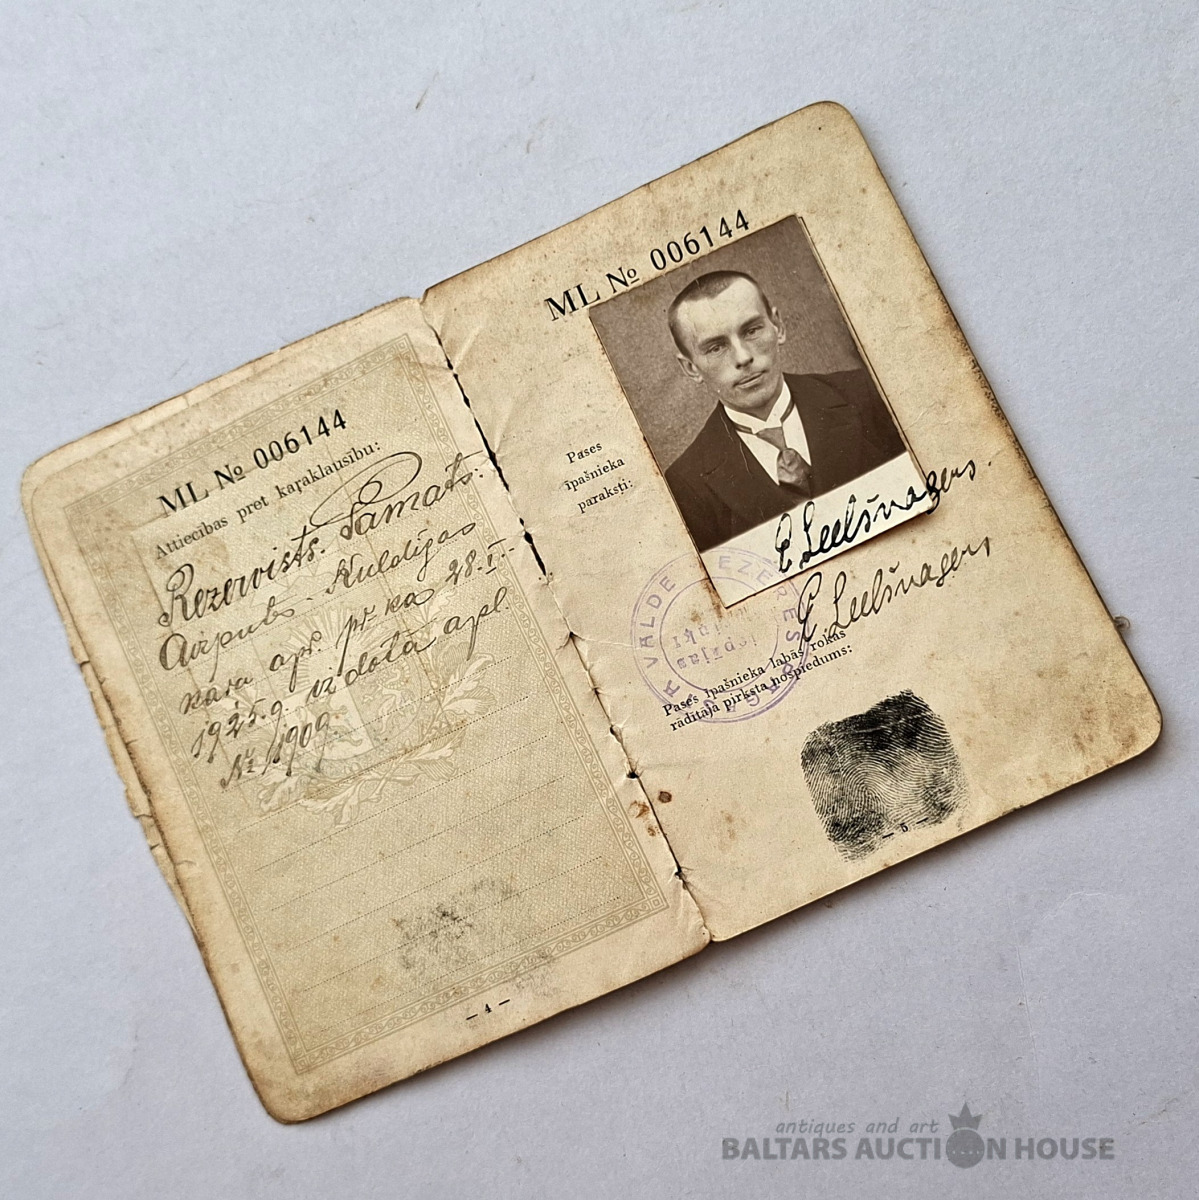 ML № 006144
Attiecības pret kaŗaklausību:
Rezervists. Pamats:
Aizputes - Kuldigas
kara apr. pr-ka 28.I.-
1925.g. izdota apl.
№ 1909.
— 4 —
ML № 006144
Pases
īpašnieka
paraksts:
E Leelšnagers.
E Leelšnagers
VALDE EZERES PAGASTA
Liepājas
Pases īpašnieka labās rokas
rādītāja pirksta nospiedums:
— 5 —
antiques and art
BALTARS AUCTION HOUSE